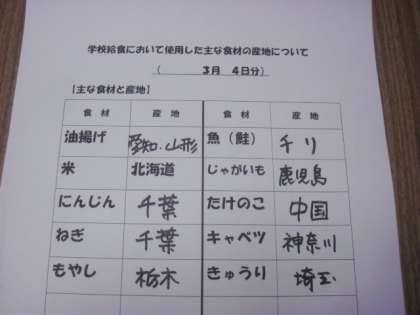 学校給食において使用した主な食材の産地について
（　　　　３月　４日分）
【主な食材と産地】
食　材　産　地　食　材　産　地
油揚げ　愛知．山形　魚（鮭）　チリ
米　北海道　じゃがいも　鹿児島
にんじん　千葉　たけのこ　中国
ねぎ　千葉　キャベツ　神奈川
もやし　栃木　きゅうり　埼玉